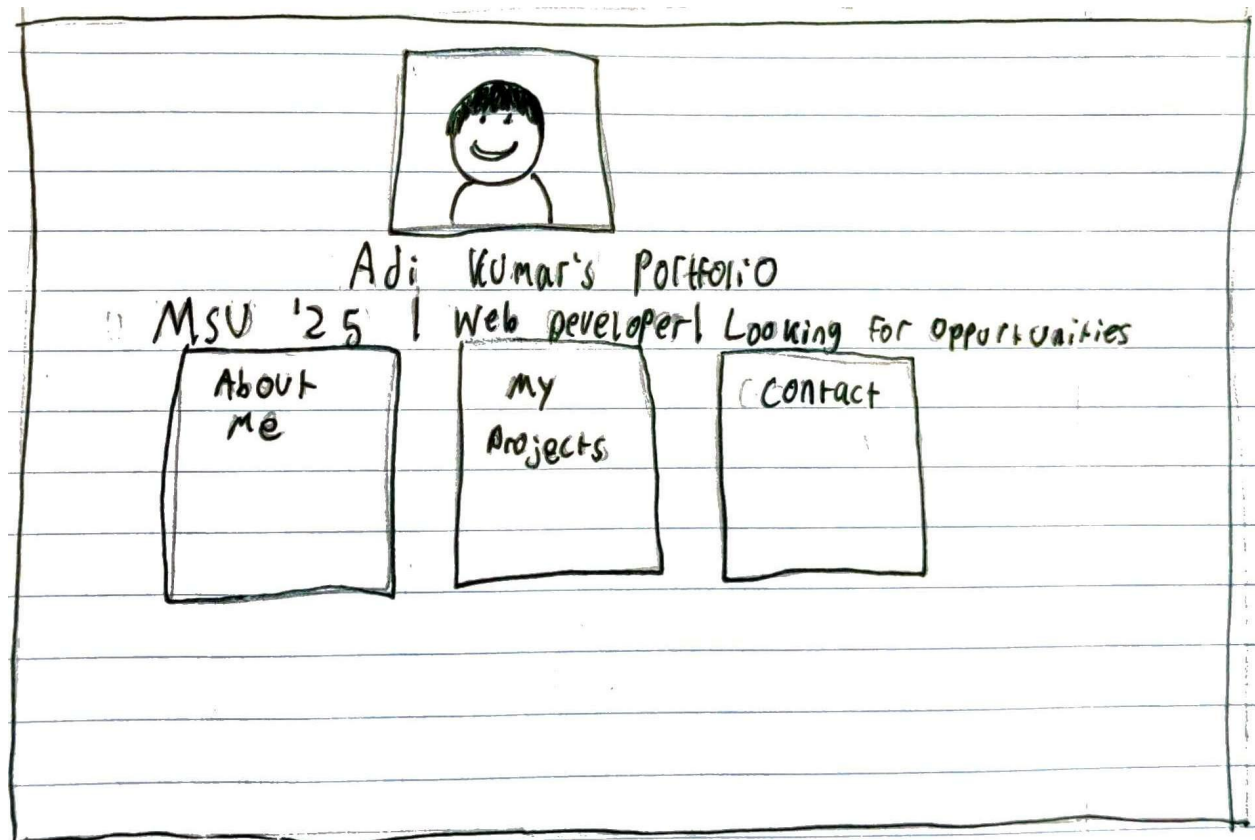 Adi Kumar's Portfolio
MSU '25 | Web Developer | Looking For Oppurtunities
About
Me
My
Projects
Contact